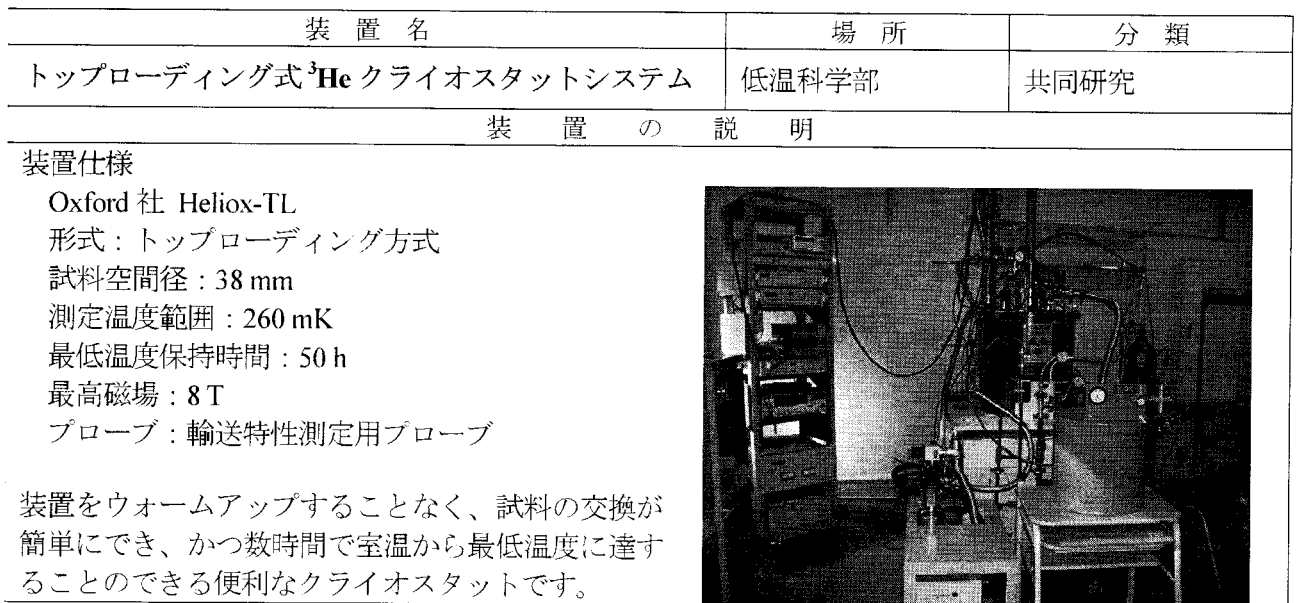 装 置 名
場 所
分 類
トップローディング式³Heクライオスタットシステム
低温科学部
共同研究
装 置 の 説 明
装置仕様
Oxford 社 Heliox-TL
形式：トップローディング方式
試料空間径：38 mm
測定温度範囲：260 mK
最低温度保持時間：50 h
最高磁場：8 T
プローブ：輸送特性測定用プローブ
装置をウォームアップすることなく、試料の交換が
簡単にでき、かつ数時間で室温から最低温度に達す
ることのできる便利なクライオスタットです。